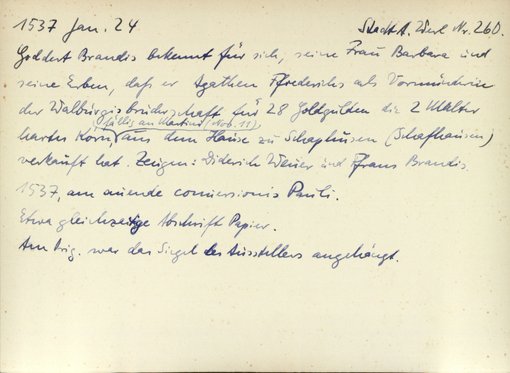 1537 Jan. 24 Stadt A. Werl Nr. 260.
Goddert Brandis bekennt für sich, seine Frau Barbara und
seine Erben, daß er Agathen Ffrederichs als Vormünderin
der Walburgisbruderschaft für 28 Goldgulden die 2 Mälter
fällig an Martini (Nov. 11)
hartes Korn aus dem Hause zu Schaphusen (Schafhausen)
verkauft hat. Zeugen: Diderich Wever und Ffrans Brandis.
1537, am avende conversionis Pauli.
Etwa gleichzeitige Abschrift Papier.
Am Orig. war das Siegel des Ausstellers angehängt.